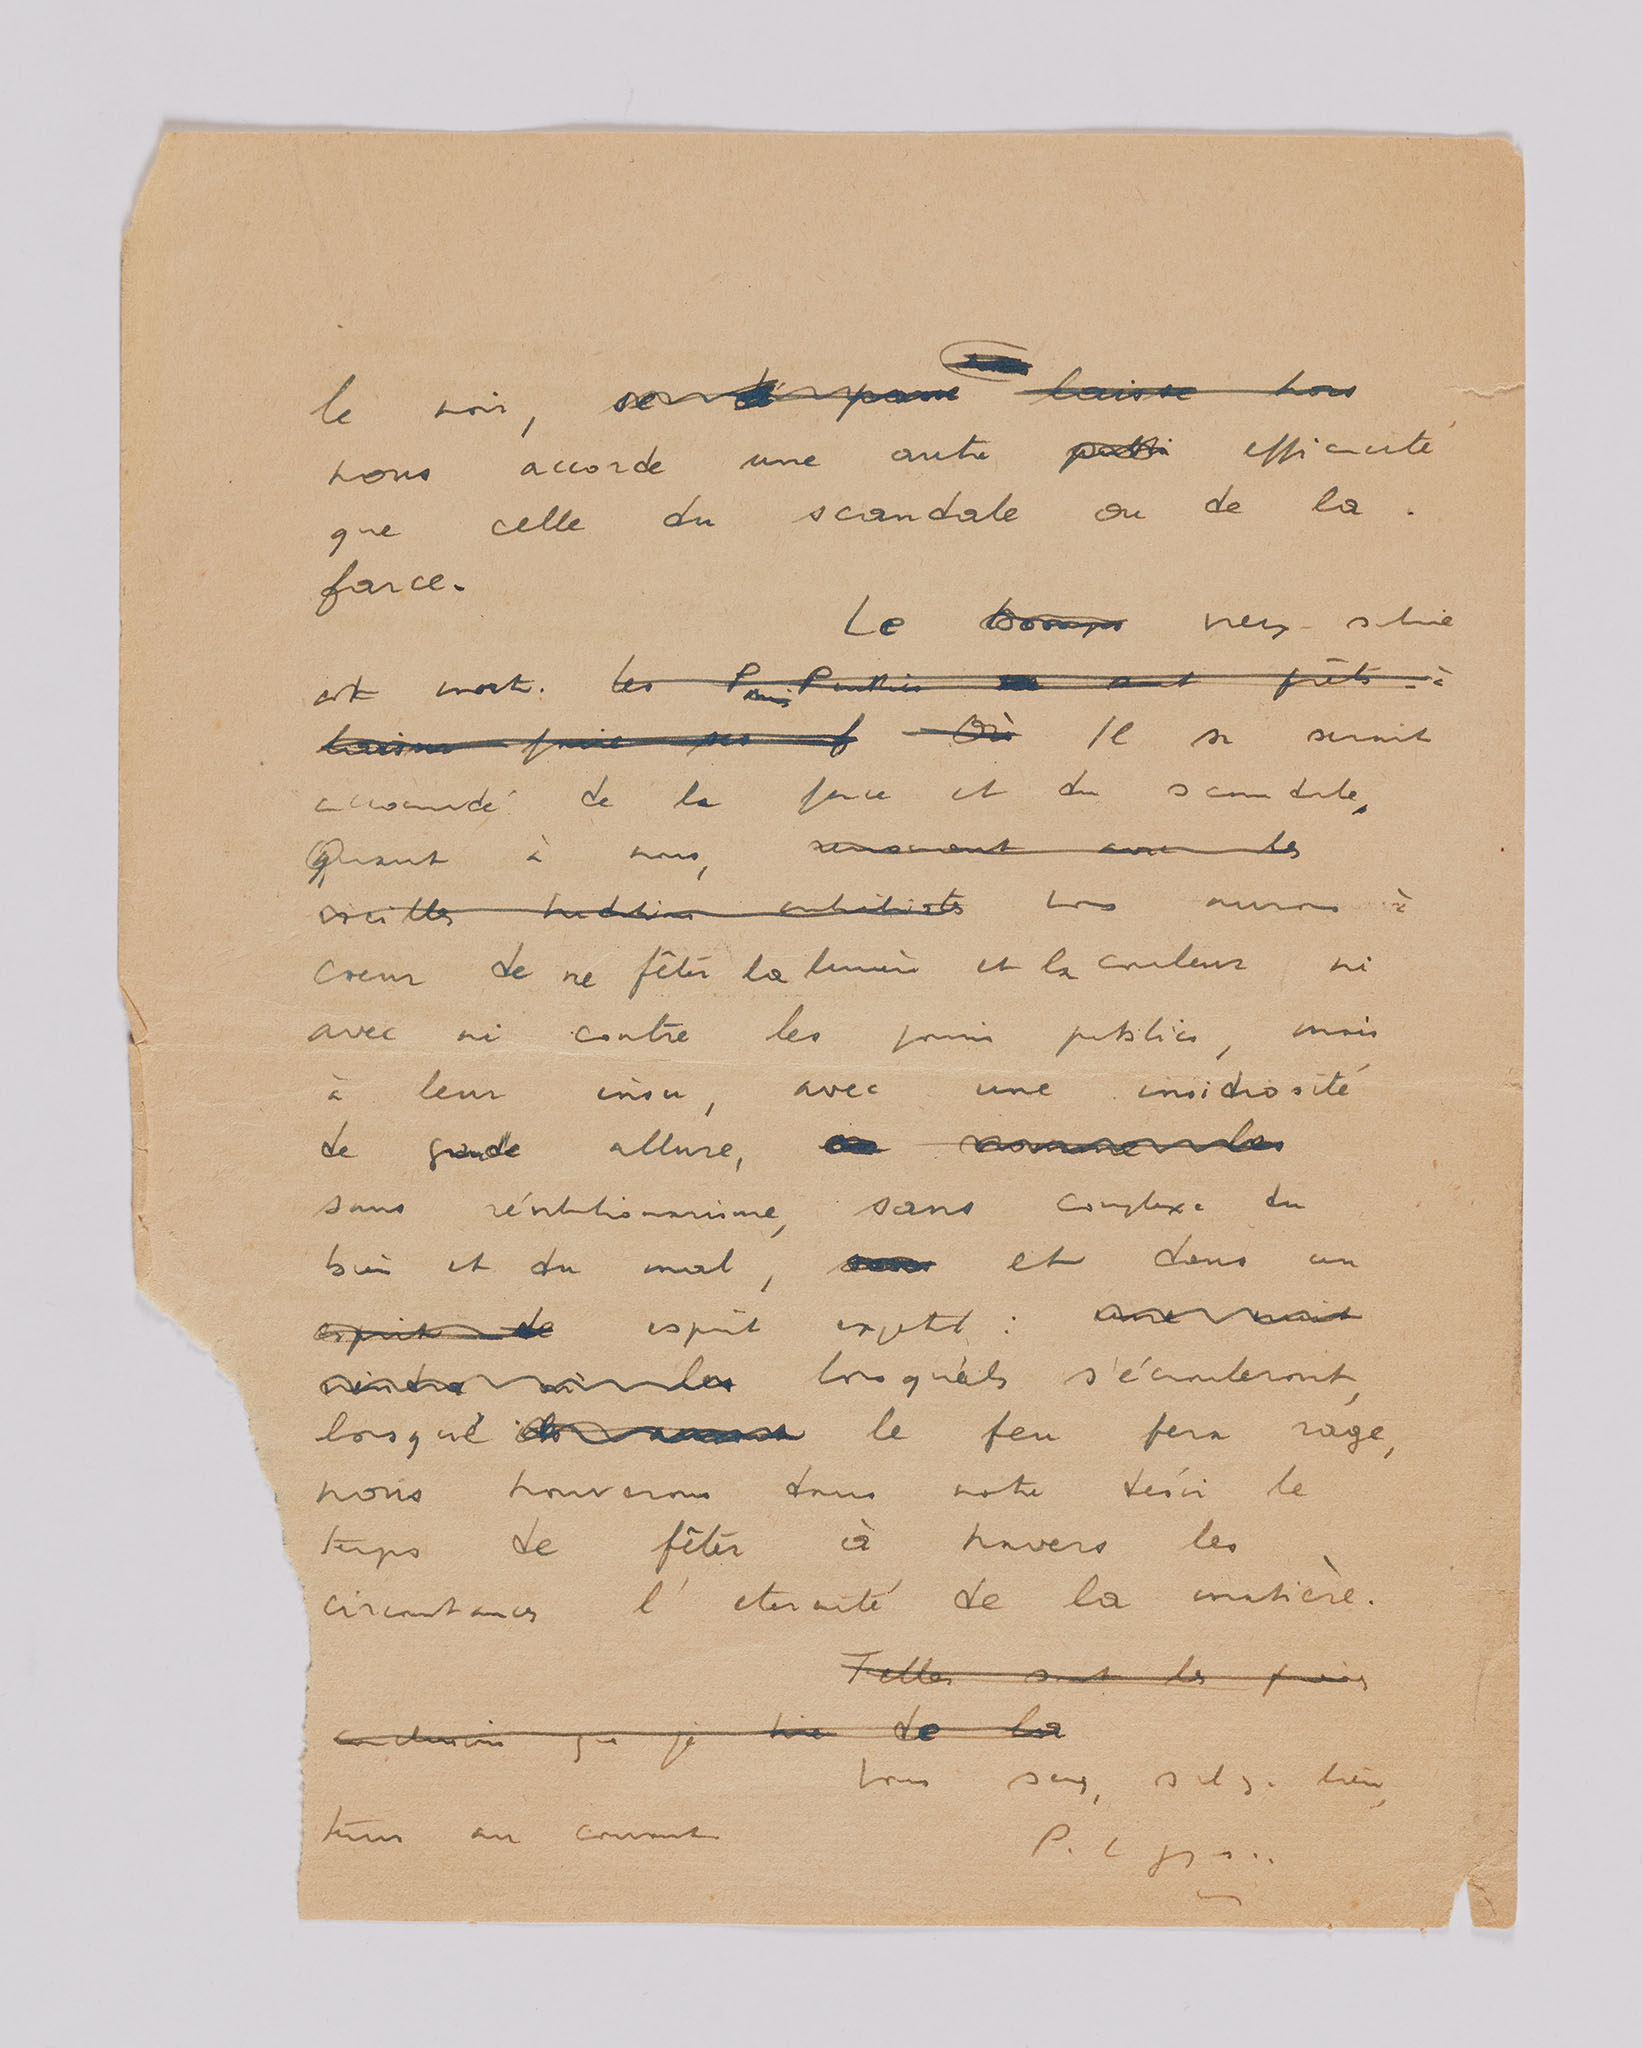 le noir, laisse nous
nous accorde une autre efficacité
que celle du scandale ou de la
farce.
Le vieux
est mort. Les sont prêts à
faire ses Où Il se serait
accomodé de la farce et du scandale,
Quant à nous, les
vieilles nous aurons à
coeur de ne fêter la lumière et la couleur ni
avec ni contre les publics, mais
à leur insu, avec une insidiosité
de grande allure,
sans révolutionarisme, sans complexe du
bien et du mal, et dans un
esprit de esprit :
les lorsqu'ils s'écrouleront,
lorsque le feu fera rage,
nous trouverons dans notre désir le
temps de fêter à travers les
circonstances l'éternité de la matière.
Telles sont les
conclusions que je tire de la
bien,
tiens au courant